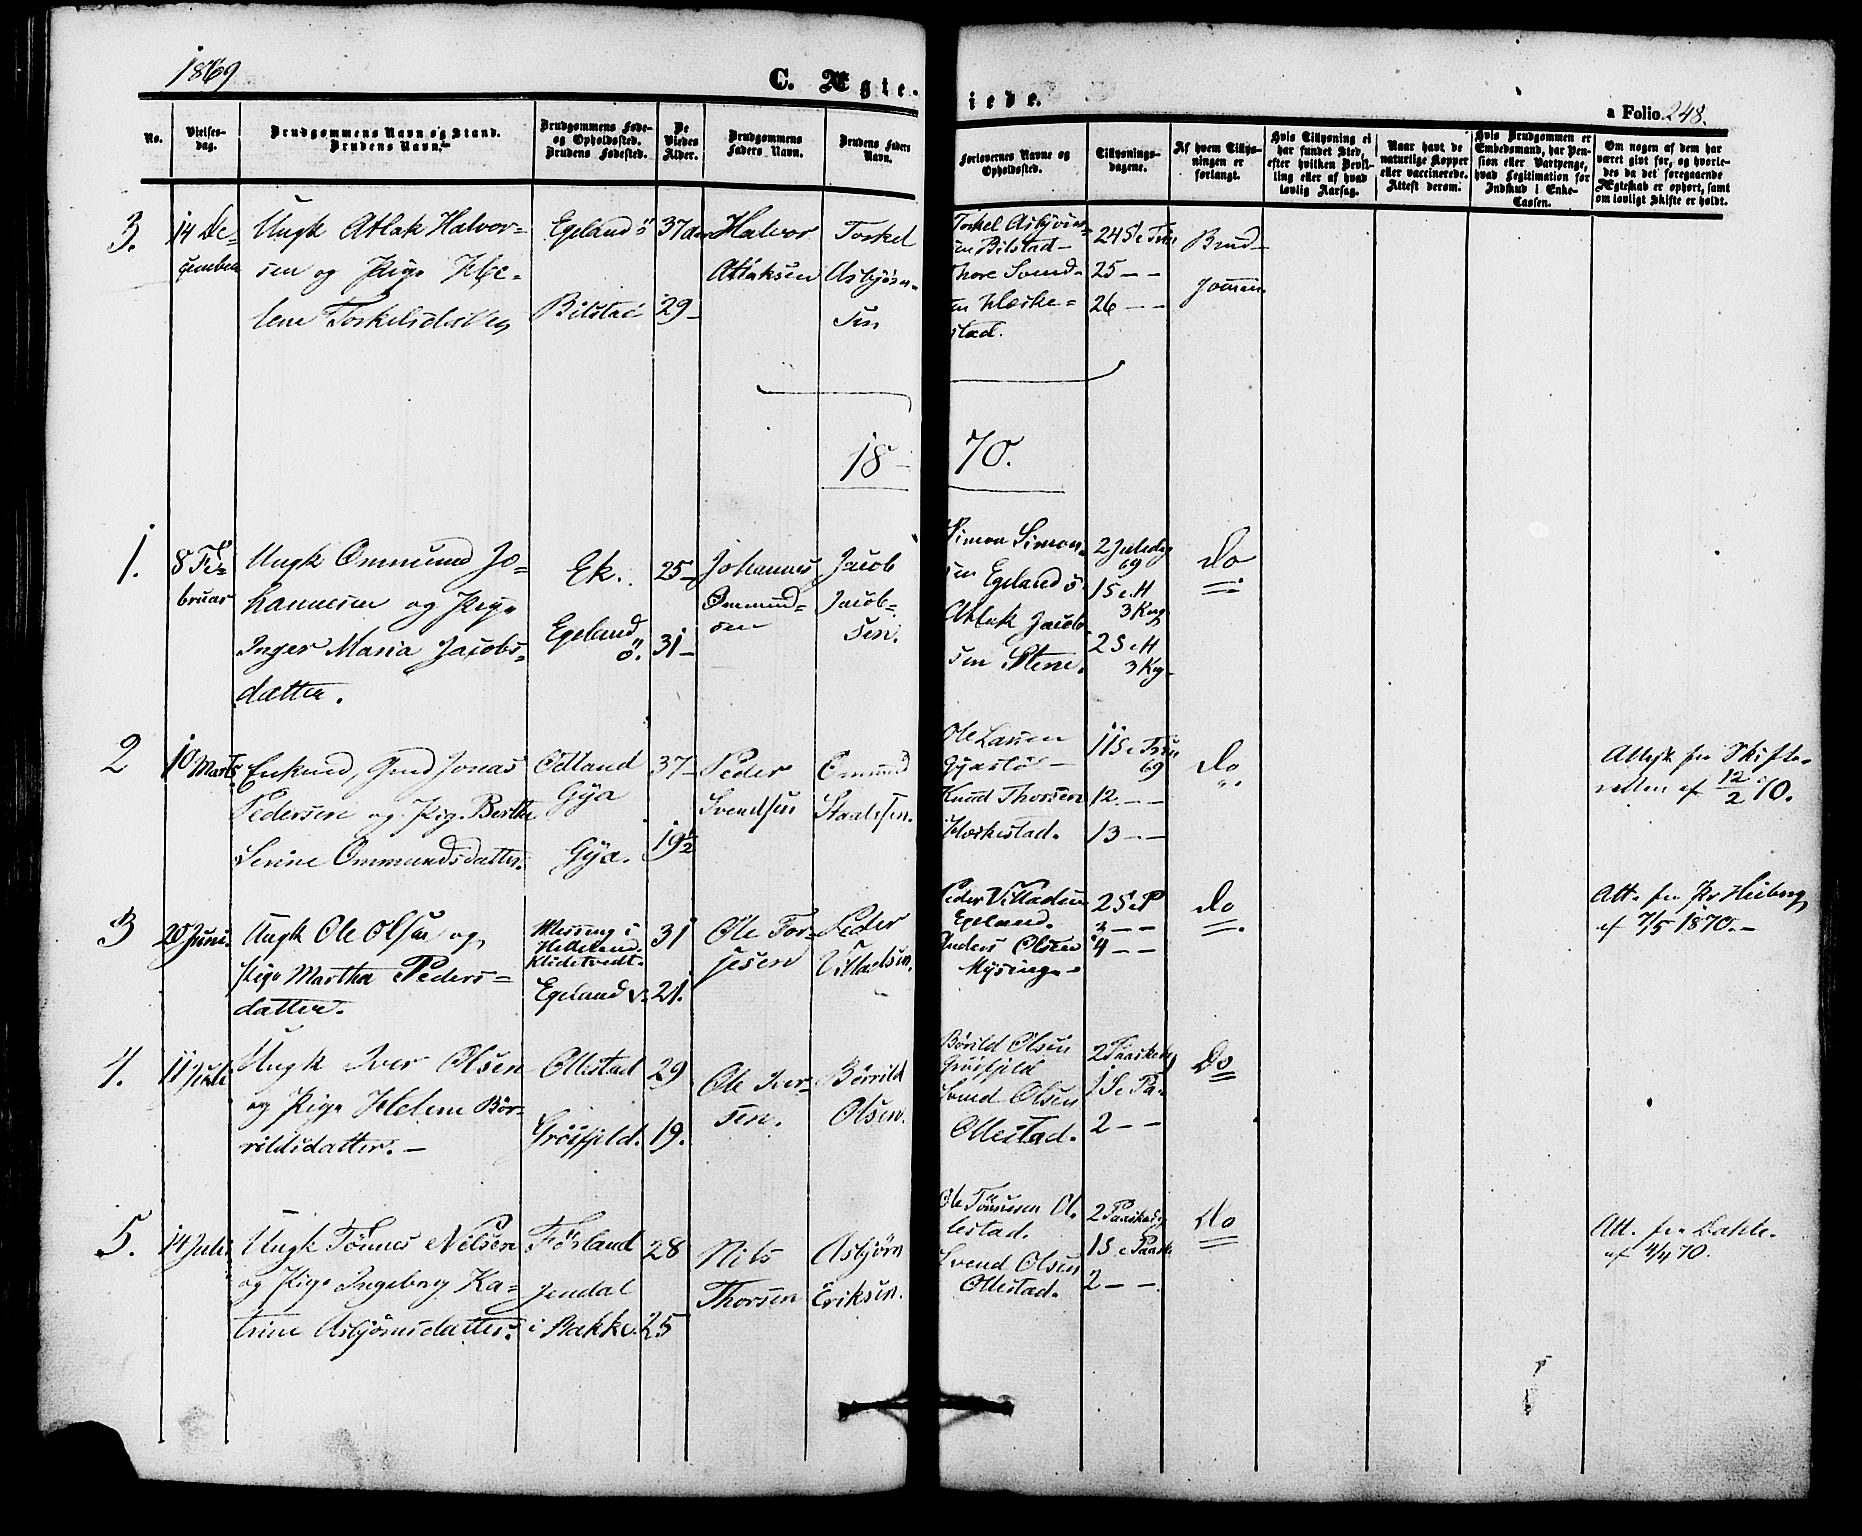 1869
C. Ægte-
viede.
a Folio 248.
No.
Vielses-
dag.
Brudgommens Navn og Stand.
Brudens Navn.
Brudgommens Føde-
og Opholdssted.
Brudens Fødested.
De
Viedes
Alder.
Brudgommens
Faders Navn.
Brudens Faders
Navn.
Forlovernes Navne og
Opholdssted.
Tillysnings-
dagene.
Af hvem Tillys-
ningen er
forlangt.
Hvis Tillysning ei
har fundet Sted,
efter hvilken Bevil-
ling eller af hvad
lovlig Aarsag.
Naar havt de
naturlige Kopper
eller vaccinerede.
Attest derom.
Hvis Brudgommen er
Embedsmand, har Pen-
sion eller Vartpenge,
hvad Legitimation for
Indskud i Enke-
Cassen.
Om nogen af dem har
været givt før, og hvorle-
des da det foregaaende
Ægteskab er ophørt, samt
om lovligt Skifte er holdt.
3.
14 De-
cember
Ungk Atlak Halvor-
sen og Pige He-
lene Torkelsdatter
Egeland ö
Bilstad
37
29
Halvor
Atlaksen
Torkel
Asbjørn-
sen
Torkel Asbjørn-
sen Bilstad
Thore Svend-
sen Heske-
stad.
24 S e Trin
25 – –
26 – –
Brud-
gommen.
18 70.
1.
8 Fe-
bruar
Ungk Ommund Jo-
hannesen og Pige
Inger Maria Jacobs-
datter.
Ek.
Egeland
ö.
25
31
Johannes
Ommund-
sen
Jacob
Jacob-
sen.
Simon Simon-
sen Egeland ö.
Atlak Jacob
sen Stene.
2 Juledag
69
1 S e H
3 Kng
2 S e H
3 Kg
Do
2
10 Marts
Enkem, Gmd Jonas
Pedersen og Pig. Berthe
Serine Ommundsdatter.
Ödland
Gya
Gya.
37
19½
Peder
Svendsen
Ommund
Staalesen.
Ole Larsen
Knud Thorsen
Heskestad.
11 S e Trin
69
12 – –
13 – –
Do
Attest fra Skifte-
retten af 12/2 70.
3
20 Juni
Ungk Ole Olsen og
Pige Martha Peders-
datter.
Messing i
Helleland
Klidetvedt.
Egeland v.
31
21.
Ole Tor-
jesen
Peder
Villadsen.
Peder Villadsen
Egeland.
Anders Olsen
Mysinge
2 S e P
3 – –
4 – –
Do
Att. fra Pr Heiberg
af 7/5 1870.
4.
11 Juli
Ungk Iver Olsen
og Pige Helene Bör-
rildsdatter.
Ollestad
Gröisfjeld.
29
19.
Ole Iver-
sen.
Börrild
Olsen.
Börild Olsen
Gröisfjeld
Svend Olsen
Ollestad.
2 Paaskedg
1 S e Pa.
2 – –
Do
5.
14 Juli
Ungk Tönnes Nilsen
og Pige Ingeborg Ka-
trine Asbjörnsdatter.
Försland
Jendal
i Bakke.
28
25
Nils
Thorsen
Asbjörn
Eriksen.
Ole Tönnesen Ol-
lestad.
Svend Olsen
Ollestad.
2 Paaskedg
1 S e Paask
2 – –
Do
Att. fra Dahle.
af 4/4 70.